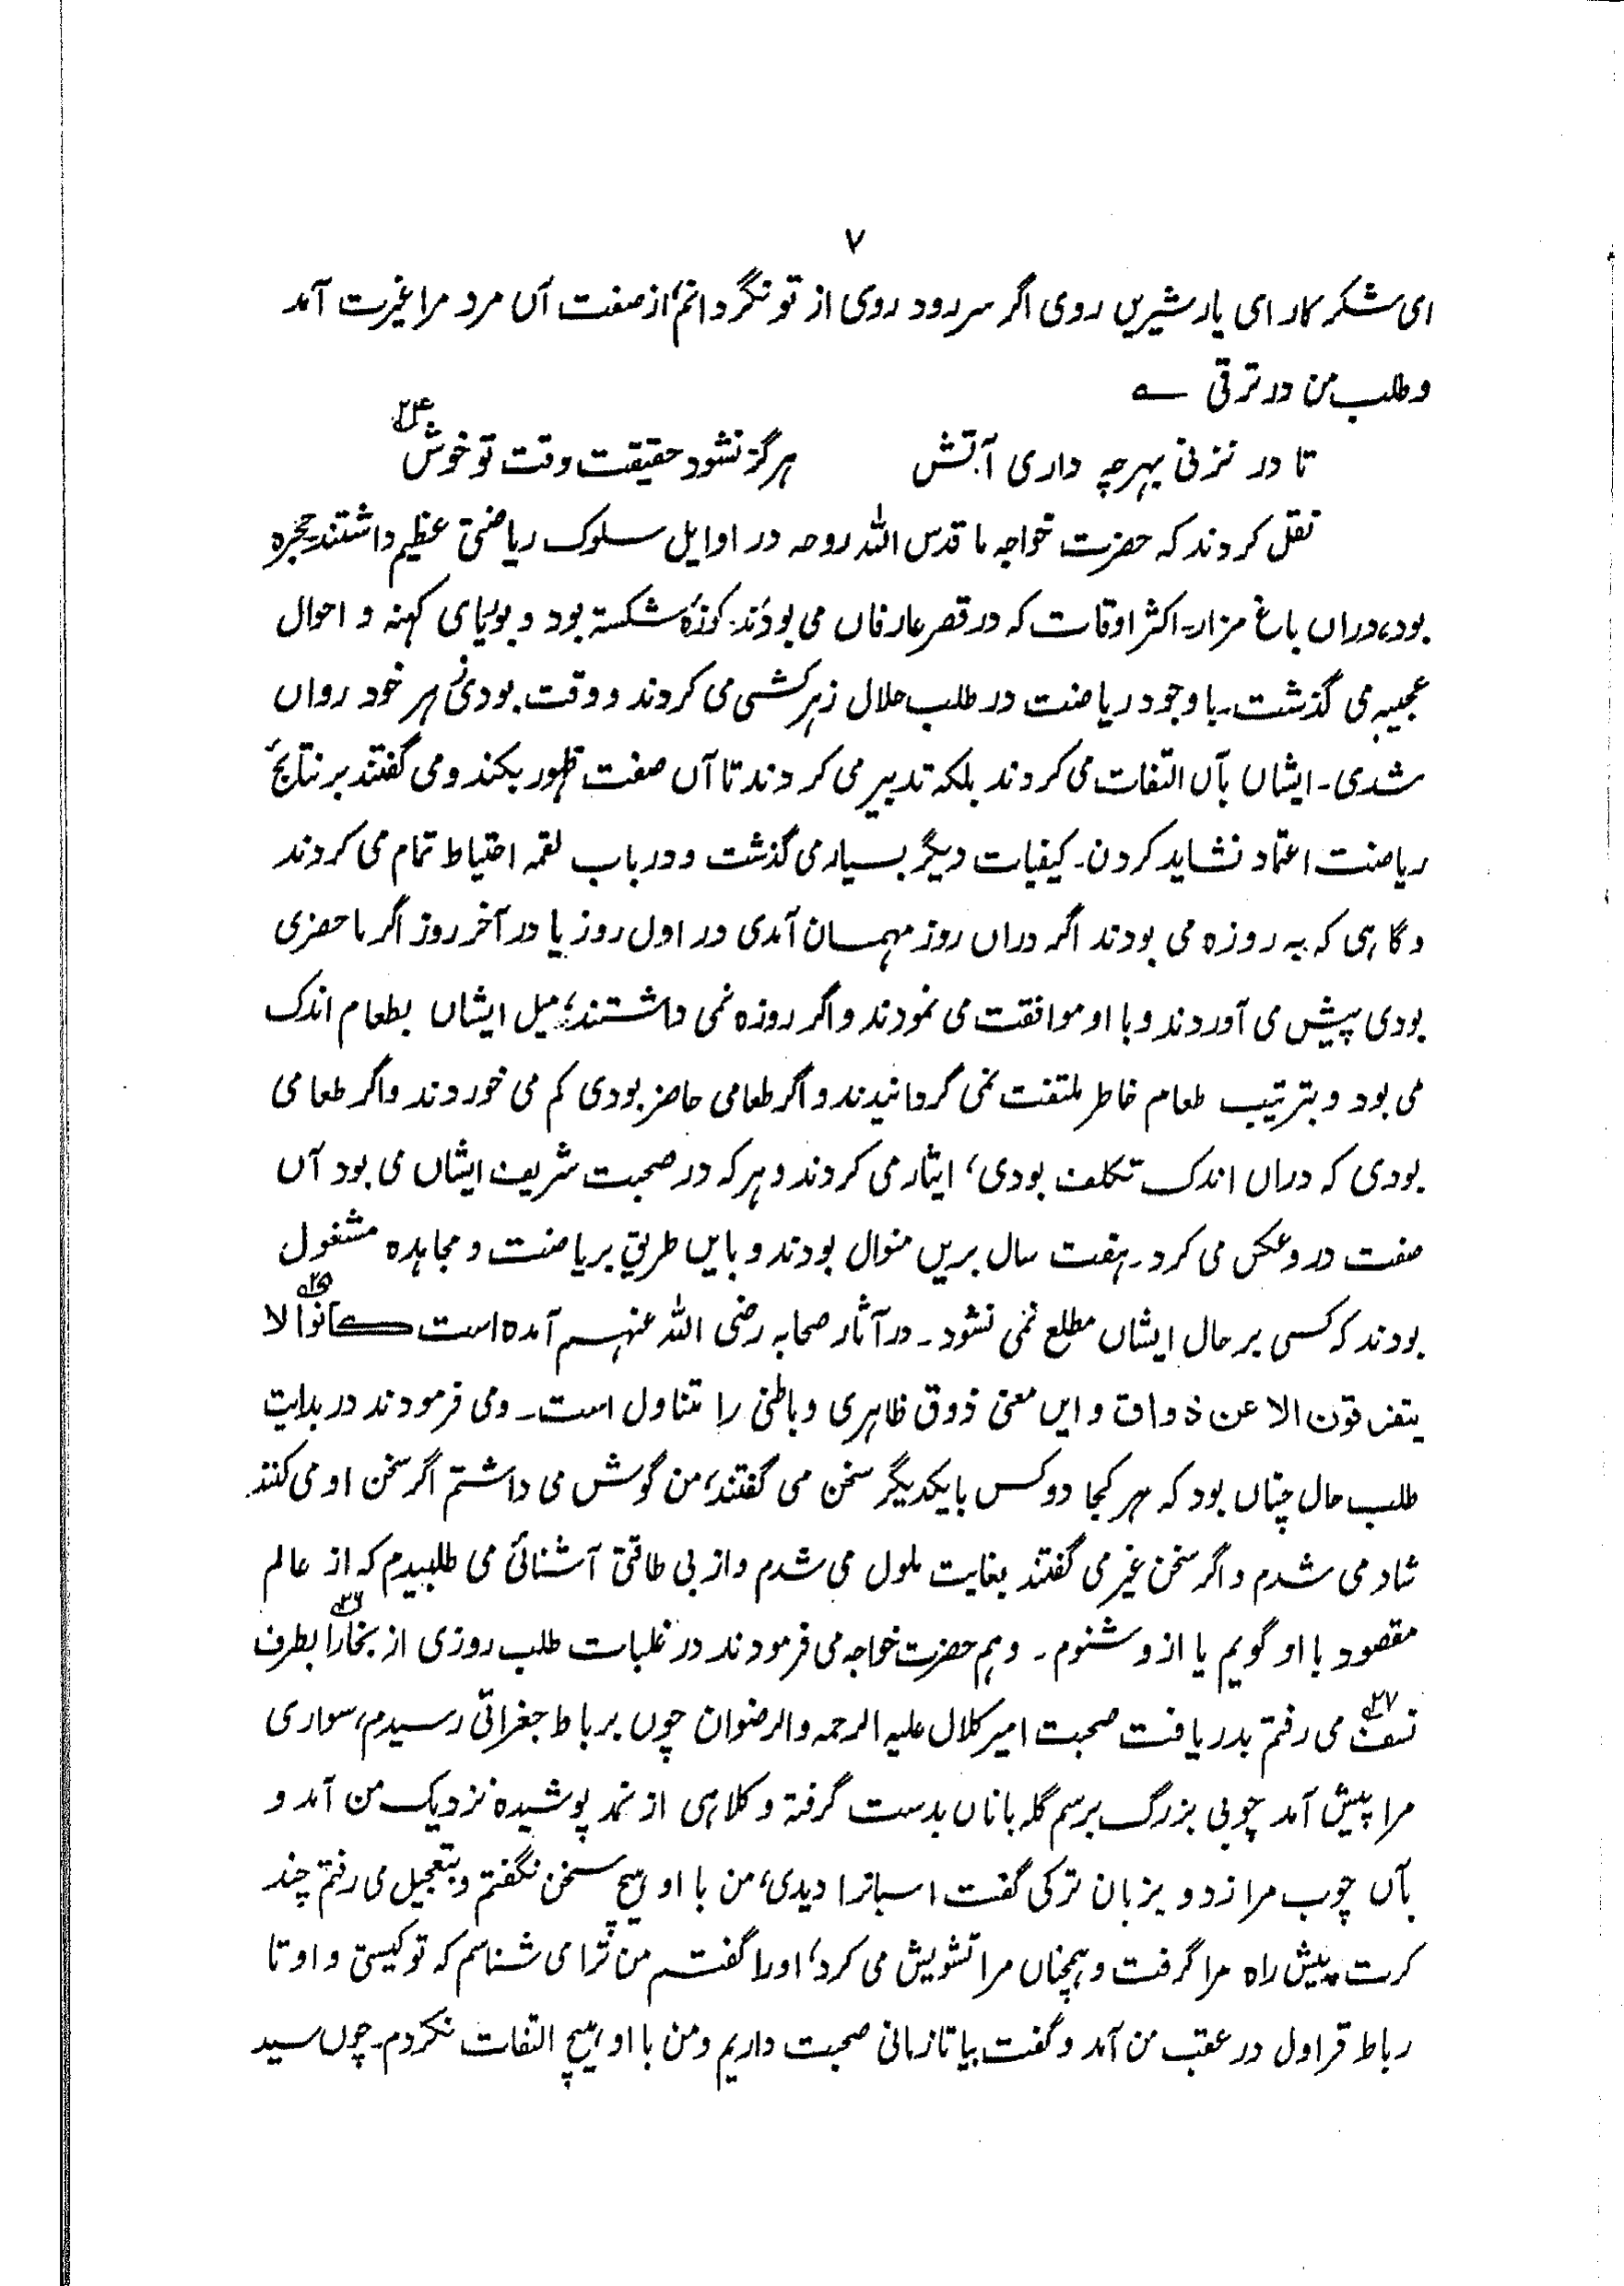 ۷
ای شکر کار ای یار شیریں روی اگر سر رود روی از تو نگردانم، از صفت آں مرد مرا غیرت آمد
و طلب من در ترقی ؎
تا در نزنی بہرچہ داری آتش ہرگز نشود حقیقت وقت تو خوش ۲۴
نقل کردند کہ حضرت خواجہ ما قدس اللہ روحہ در اوایل سلوک ریاضتی عظیم داشتند۔ حجرہ
بود، دراں باغ مزار۔ اکثر اوقات کہ در قصر عارفاں می بودند۔ کوزۂ شکستہ بود و بوریای کہنہ و احوال
عجیبہ می گذشت۔ باوجود ریاضت در طلب حلال زہر کشی می کردند و وقت بودی ہر خود رواں
شدی۔ ایشاں بآں التفات می کردند بلکہ تدبیر می کردند تا آں صفت ظہور بکند و می گفتند بر نتایج
ریاضت اعتماد نشاید کردن۔ کیفیات دیگر بسیار می گذشت و در باب لقمہ احتیاط تمام می کردند
و گاہی کہ بہ روزہ می بودند اگر دراں روز مہمان آمدی در اول روز یا در آخر روز اگر ماحضری
بودی پیش می آوردند و با او موافقت می نمودند و اگر روزہ نمی داشتند، میل ایشاں بطعام اندک
می بود و بترتیب طعام خاطر ملتفت نمی گردانیدند و اگر طعامی حاضر بودی کم می خوردند و اگر طعامی
بودی کہ دراں اندک تکلف بودی، ایثار می کردند و ہر کہ در صحبت شریف ایشاں می بود آں
صفت درو عکس می کرد۔ ہفت سال بریں منوال بودند و بایں طریق بریاضت و مجاہدہ مشغول
بودند کہ کسی بر حال ایشاں مطلع نمی نشود۔ در آثار صحابہ رضی اللہ عنہم آمدہ است کانوا ۲۵ لا
یتفرقون الا عن ذواق و ایں معنی ذوق ظاہری و باطنی را متناول است۔ و می فرمودند در بدایت
طلب حال چناں بود کہ ہر کجا دو کس بایکدیگر سخن می گفتند، من گوش می داشتم اگر سخن او می کنند
شاد می شدم و اگر سخن غیر می گفتند بغایت ملول می شدم و از بی طاقتی آشنائی می طلبیدم کہ از عالم
مقصود با او گویم یا ازو شنوم۔ و ہم حضرت خواجہ می فرمودند در غلبات طلب روزی از بخارا ۲۶ بطرف
نسف ۲۷ می رفتم بدریافت صحبت امیر کلال علیہ الرحمہ والرضوان چوں برباط جغراتی رسیدم، سواری
مرا پیش آمد چوبی بزرگ برسم گلہ باناں بدست گرفتہ و کلاہی از نمد پوشیدہ نزدیک من آمد و
بآں چوب مرا زد و بزبان ترکی گفت اسپانرا دیدی، من با او ہیچ سخن نگفتم و بتعجیل می رفتم چند
کرت پیش راہ مرا گرفت و ہمچناں مرا تشویش می کرد، اورا گفتم من ترا می شناسم کہ تو کیستی و او تا
رباط قراول در عقب من آمد و گفت بیا تا زمانی صحبت داریم و من با او ہیچ التفات نکردم۔ چوں سید